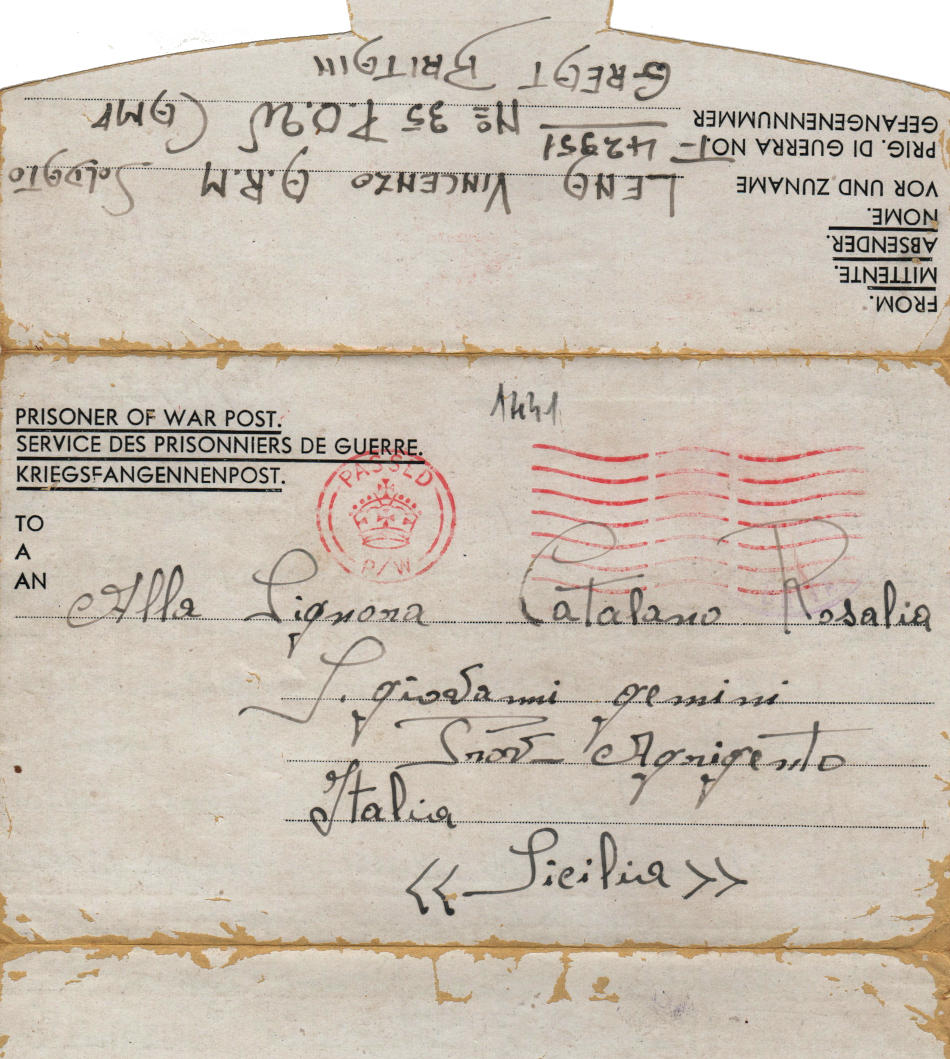 FROM.
MITTENTE.
ABSENDER.
NOME.
VOR UND ZUNAME LENA VINCENZO A.R.M SOLDATO
PRIG. DI GUERRA NO. I- 42951
GEFANGENENNUMMER Nº 35 P.O.W CAMP
GREAT BRITAIN
1441
PRISONER OF WAR POST.
SERVICE DES PRISONNIERS DE GUERRE.
KRIEGSFANGENNENPOST.
PASSED
P/W
TO
A
AN
Alla Signora Catalano Rosalia
S. giovanni gemini
Prov Agrigento
Italia
<< Sicilia >>